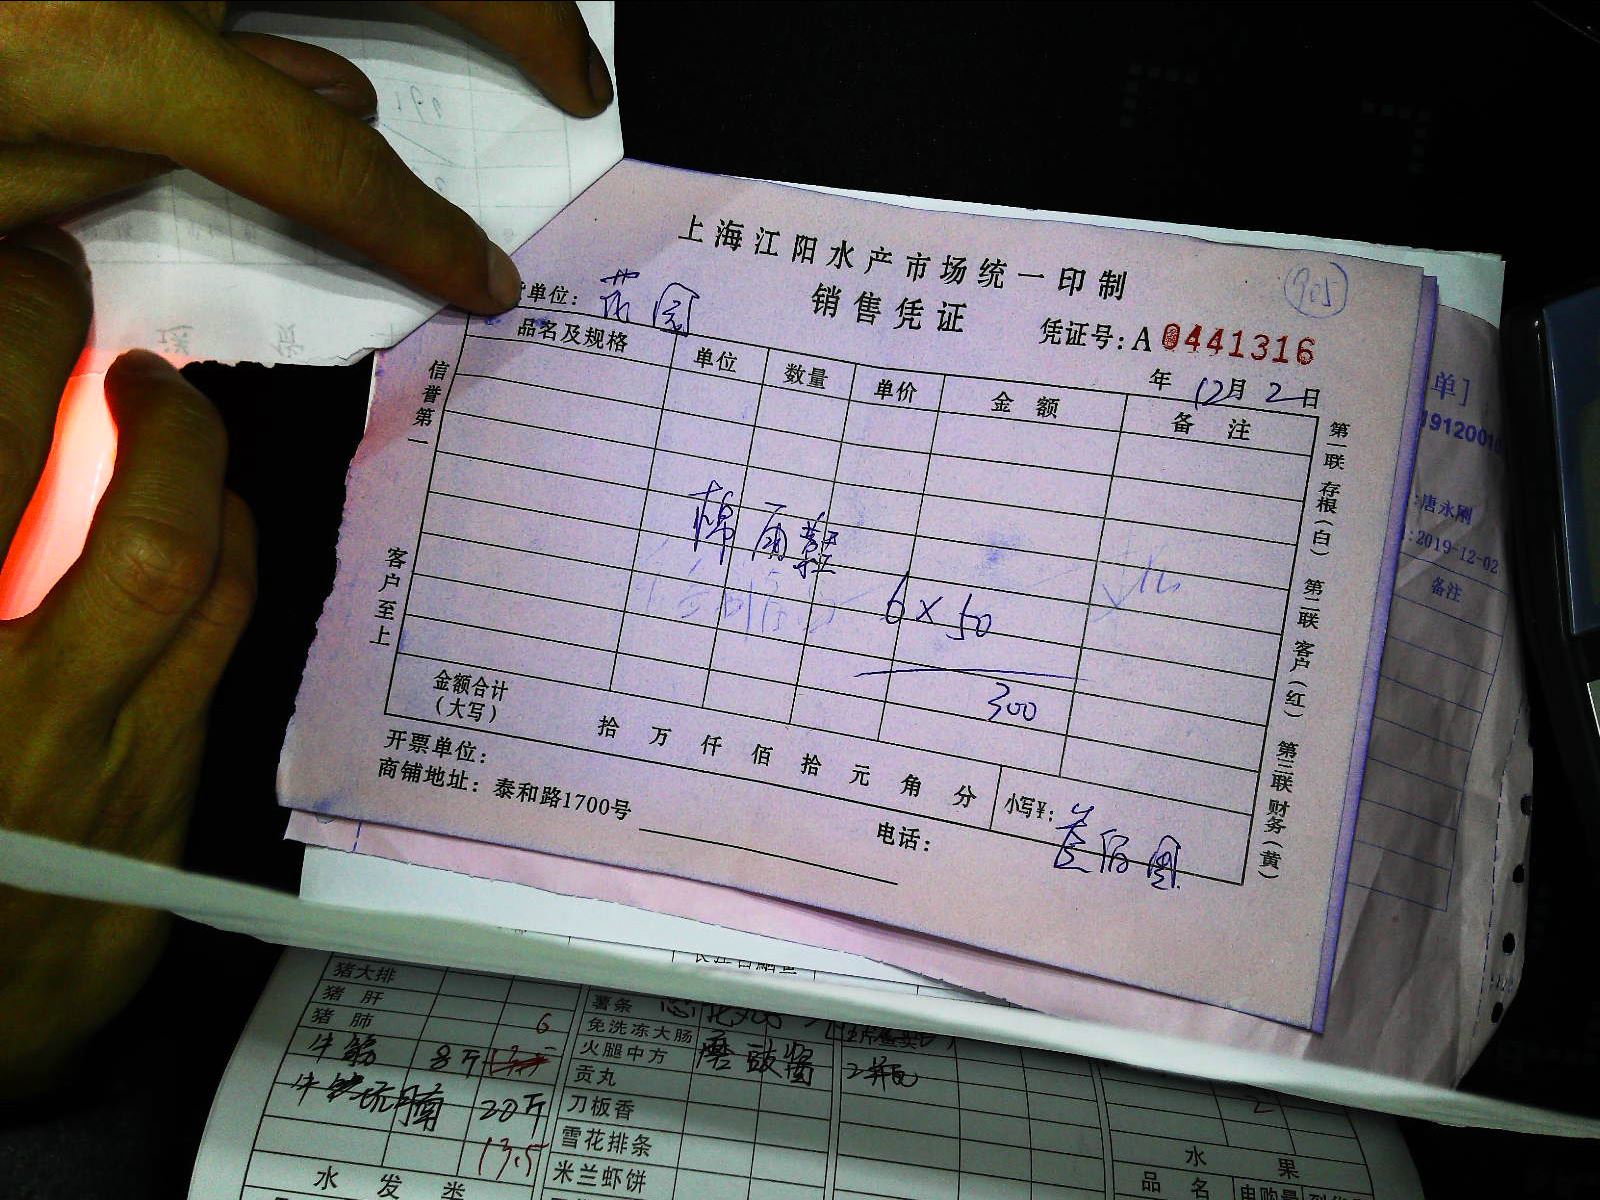 上海江阳水产市场统一印制
销售凭证
905
单位：
凭证号：A 0441316
年 12月 2日
品名及规格 单位 数量 单价 金额 备注
信誉第一
客户至上
棉雨鞋
6×50
300
金额合计
（大写） 拾 万 仟 佰 拾 元 角 分 小写¥：
开票单位：
商铺地址：泰和路1700号 电话：
第一联 存根（白） 第二联 客户（红） 第三联 财务（黄）
单]
唐永刚
:2019-12-02
备注
猪大排
猪肝
猪肺 6
牛筋 8斤
20斤
13.5
水发类
薯条
免洗冻大肠
火腿中方
贡丸
刀板香
雪花排条
米兰虾饼
磨豉酱 2瓶
2
水果
品名 申购量